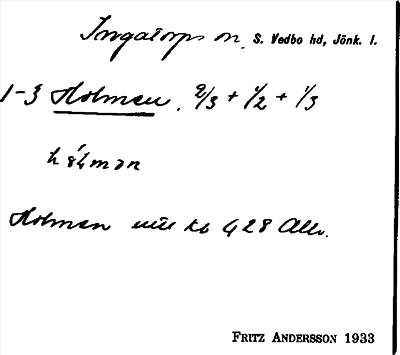 Ingatorps sn. S. Vedbo hd, Jönk. l.
1-3 Holmen. 2/3 + 1/2 + 1/3
Holmen kb 428 Allm.
FRITZ ANDERSSON 1933